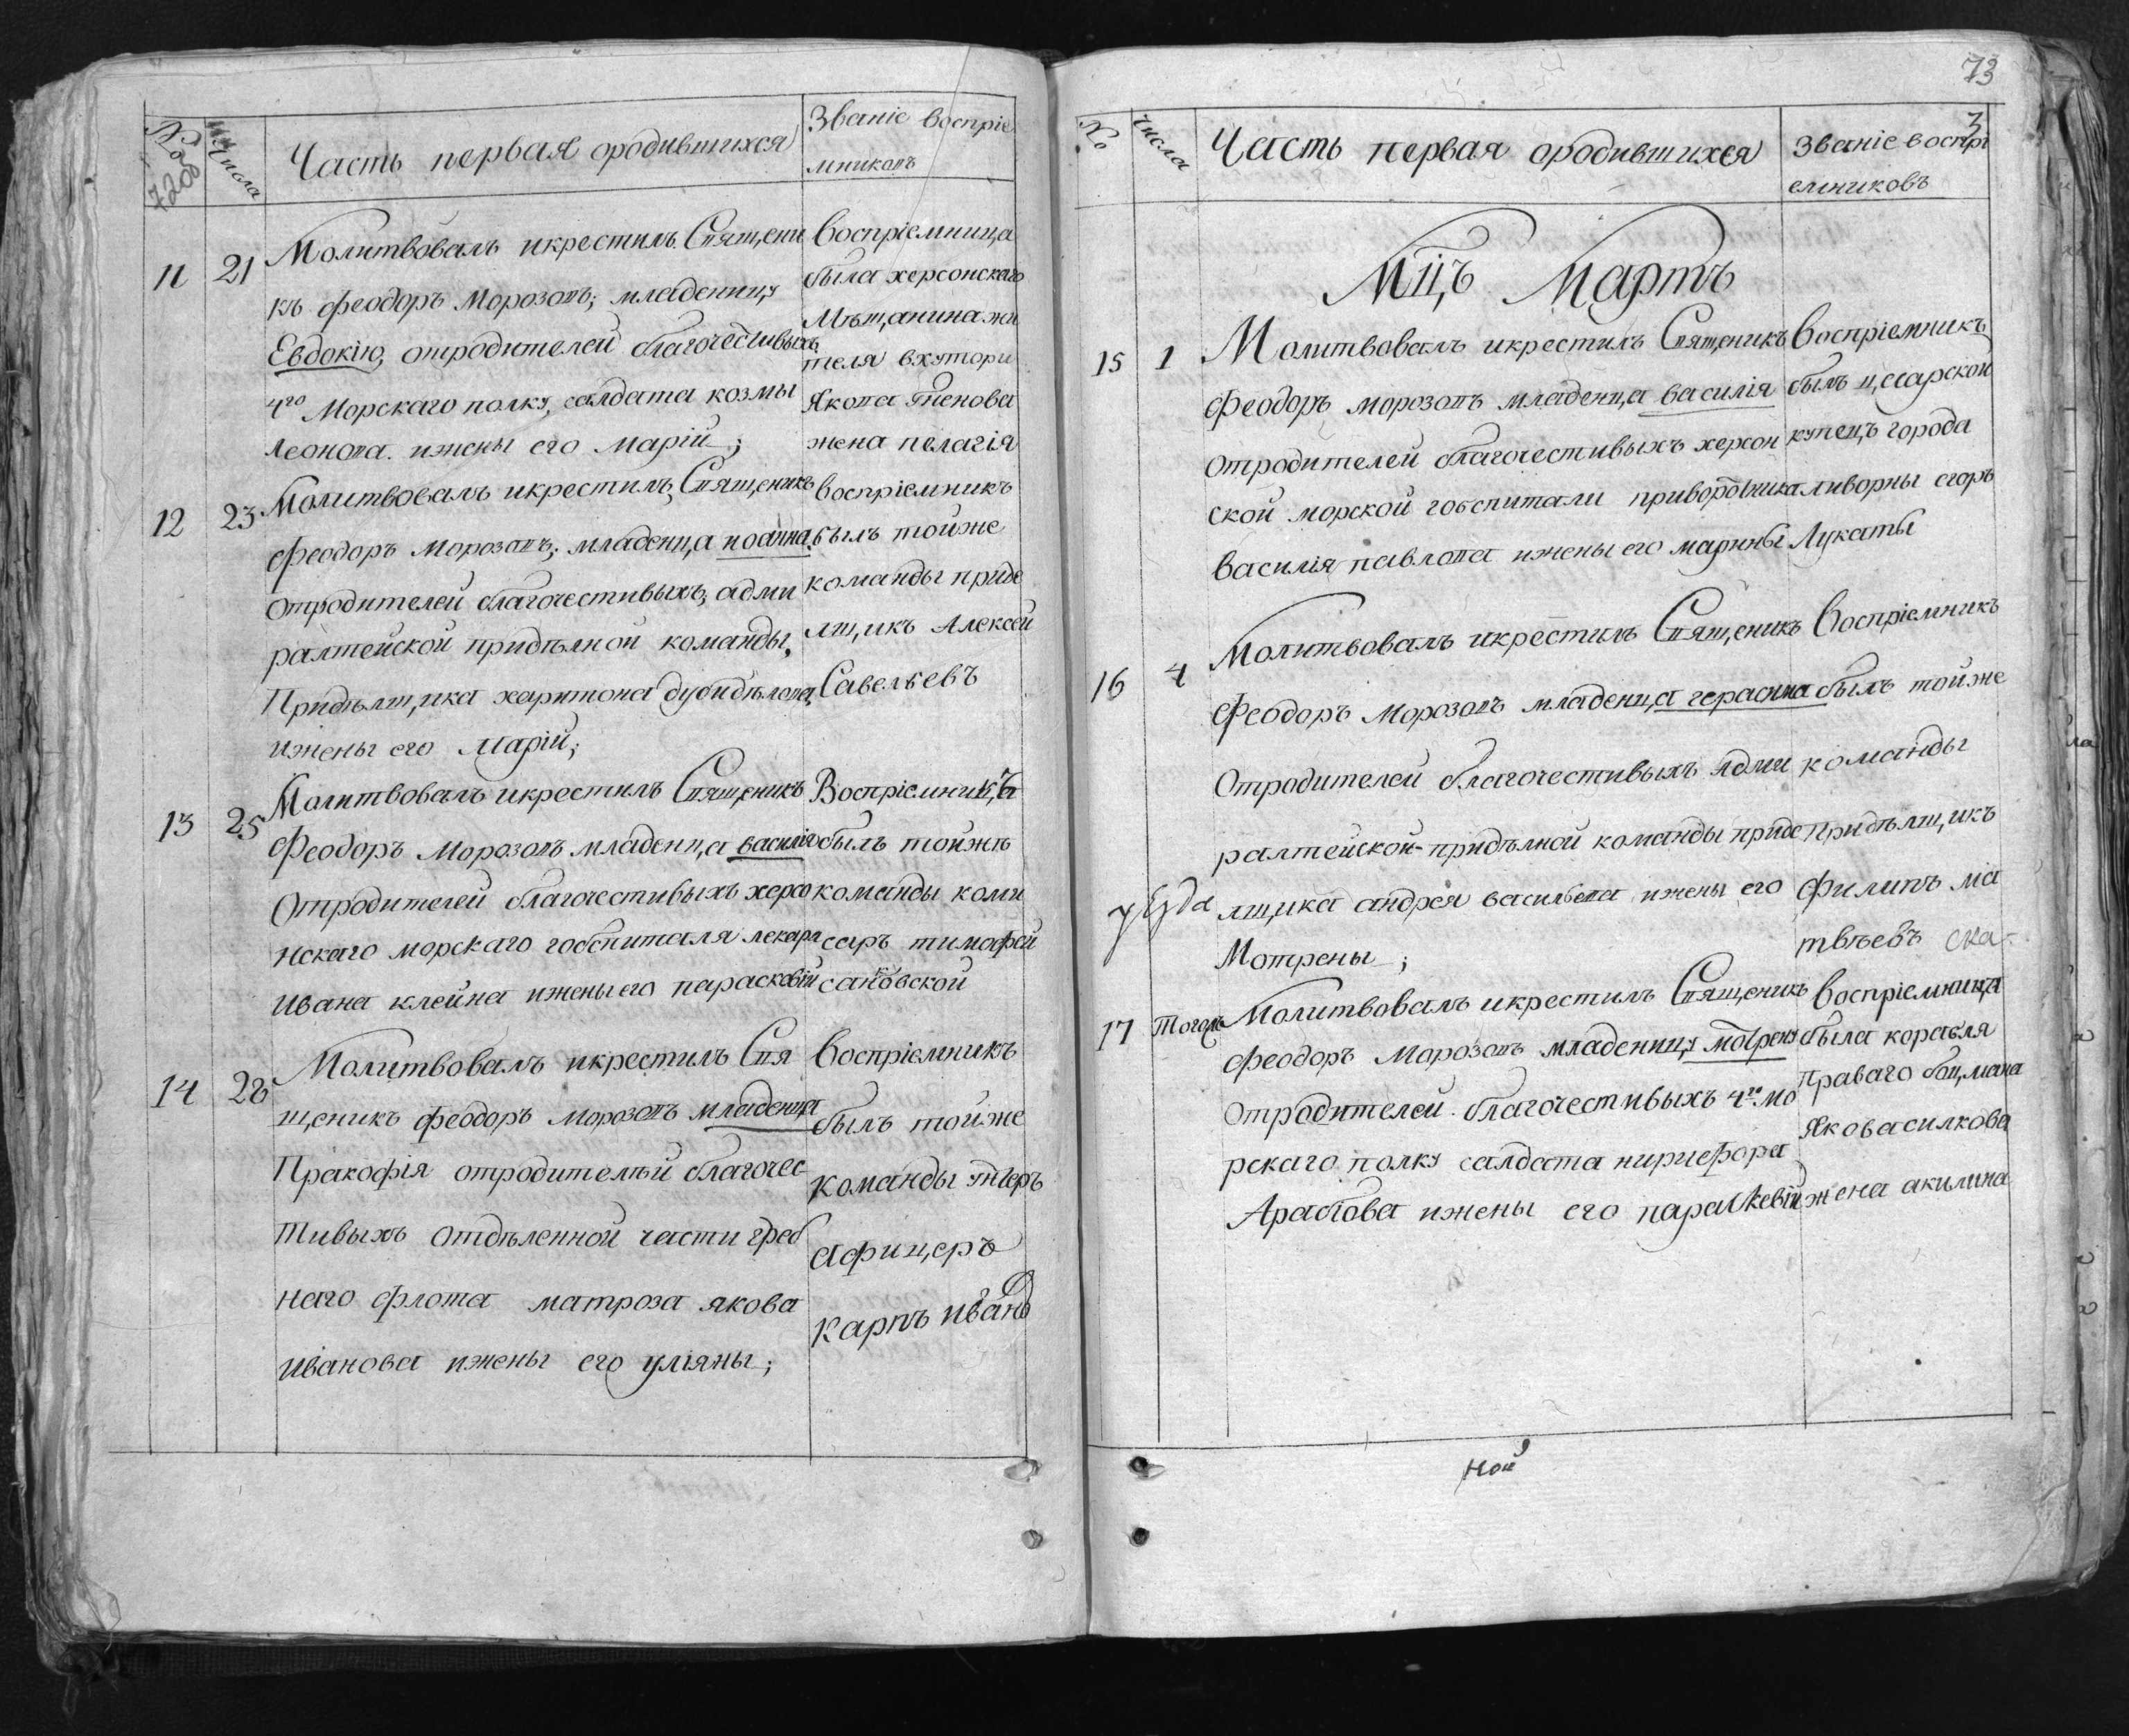 №
числа
Часть первая ородившихся
Званіе воспріе
мниковъ
11 21
Молитвовалъ икрестилъ Священи
къ феодоръ Морозовъ; младеницу
Евдокію, отродителей благочестивыхъ
4го Морскаго полку, салдата козмы
Леонова ижены его Маріи;
воспріемница
была херсонскаго
Мѣщанина жи
теля вхутори
Якова
жена пелагія
12 23
Молитвовалъ икрестилъ Священикъ
феодоръ Морозовъ; младенца иоанна
отродителей благочестивыхъ; адми
ралтейской придѣлной команды,
Придѣлщика харитона дубидѣлова,
ижены его Маріи;
воспріемникъ
былъ тойже
команды приде
лщикъ Алексей
Савельевъ
13 25
Молитвовалъ икрестилъ Священикъ
Феодоръ Морозовъ младенца василія
Отродителей благочестивыхъ херсо
нскаго морскаго гобспиталя лекаря
Ивана клейна ижены его параскевіи
Воспріемникъ
былъ тойжѣ
команды коми
саръ тимофей
14 28
Молитвовалъ икрестилъ Свя
щеникъ феодоръ Морозовъ младенца
Пракофія отродителѣй благочес
тивыхъ отдѣленной части греб
наго флота матроза якова
Иванова ижены его уліяны;
воспріемникъ
былъ тойже
команды ундеръ
афицеръ
карпъ ивано
73
3
№
числа
Часть первая ородившихся
Званіе воспрі
емниковъ
Мцъ Мартъ
15 1
Молитвовалъ икрестилъ Священикъ
феодоръ морозовъ младенца василія
отродителей благочестивыхъ херсон
ской морской гобспитали приворотника
василія павлова ижены его марины
воспріемникъ
былъ цесарской
купецъ города
ливорны егоръ
Лукаты
16 4
Молитвовалъ икрестилъ Священикъ
феодоръ Морозовъ младенца герасима
Отродителей благочестивыхъ Адми
ралтейской придѣлной команды приде
лщика андрея васильева ижены его
Мотрены;
воспріемникъ
былъ тойже
команды
придѣлщикъ
филипъ ма
твѣевъ
17 Тогожъ
Молитвовалъ икрестилъ Священикъ
феодоръ Морозовъ младеницу мотрену
отродителей благочестивыхъ 4го мо
рскаго полку салдата
ижены его параскевіи
воспріемница
была корабля
Праваго боцмана
Якова силкова
жена акилина
ной